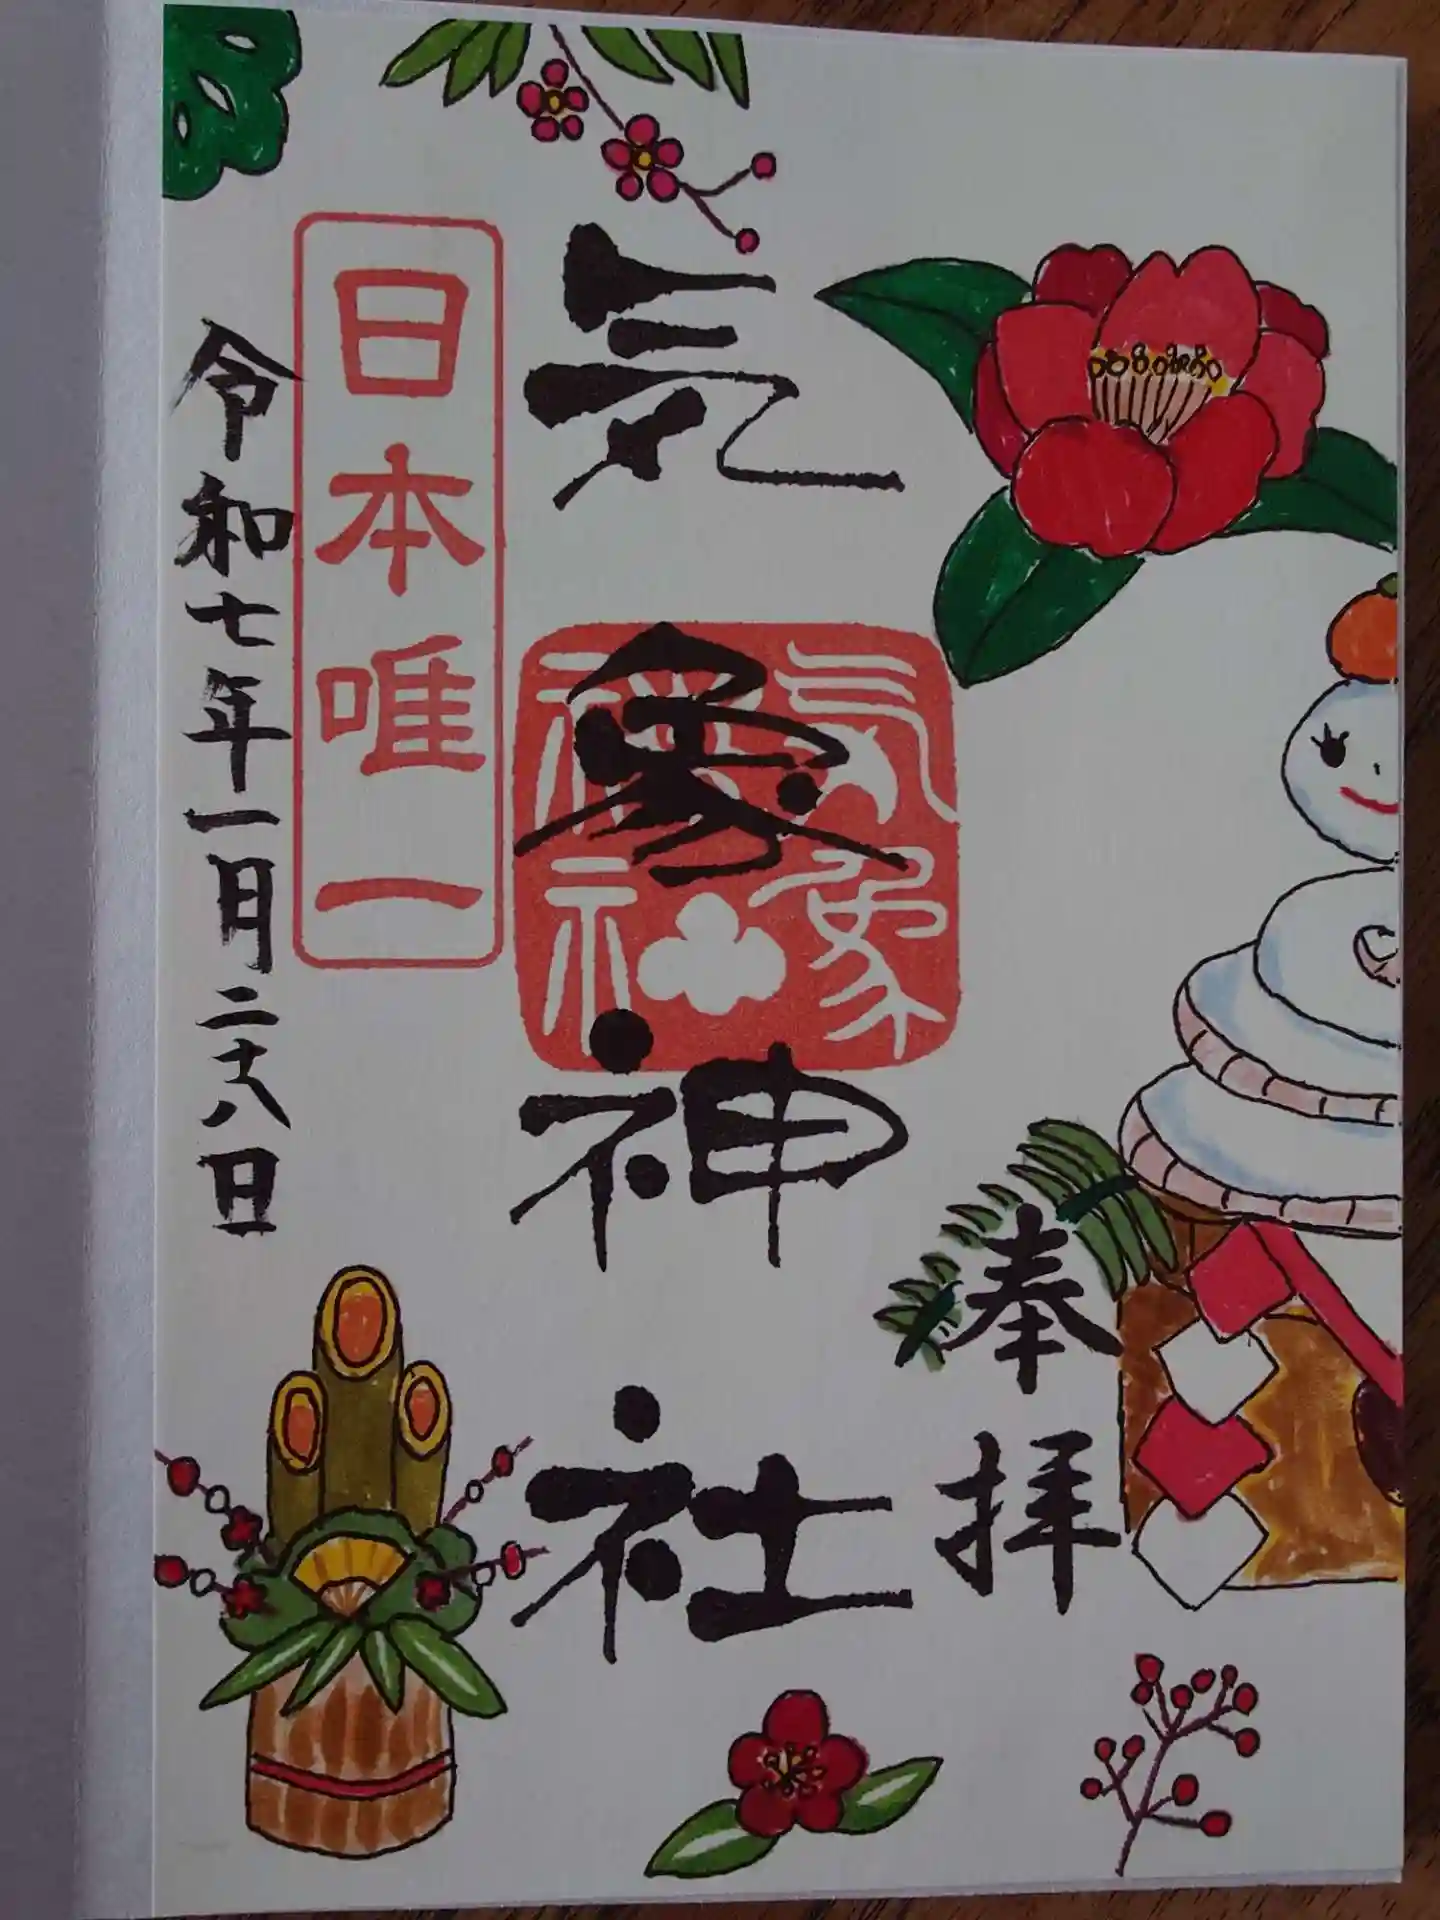 奉拝
気象神社
気象神社
日本唯一
令和七年一月二十八日